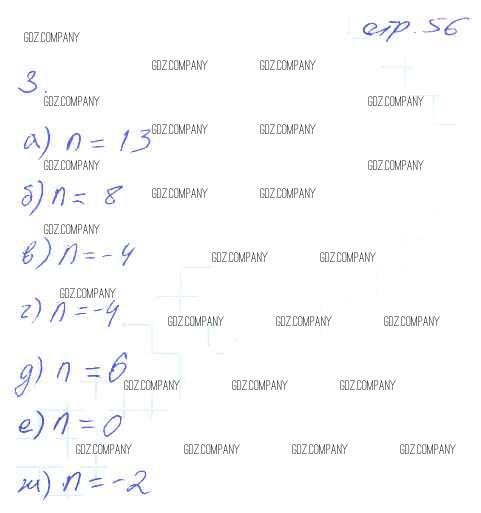 стр. 56
GDZ.COMPANY
GDZ.COMPANY GDZ.COMPANY
3.
GDZ.COMPANY GDZ.COMPANY
а) n = 13 GDZ.COMPANY GDZ.COMPANY
GDZ.COMPANY GDZ.COMPANY
б) n = 8 GDZ.COMPANY GDZ.COMPANY
GDZ.COMPANY
в) n = -4 GDZ.COMPANY GDZ.COMPANY
GDZ.COMPANY
г) n = -4 GDZ.COMPANY GDZ.COMPANY GDZ.COMPANY
д) n = 6 GDZ.COMPANY GDZ.COMPANY GDZ.COMPANY
е) n = 0
GDZ.COMPANY GDZ.COMPANY GDZ.COMPANY GDZ.COMPANY
ж) n = -2